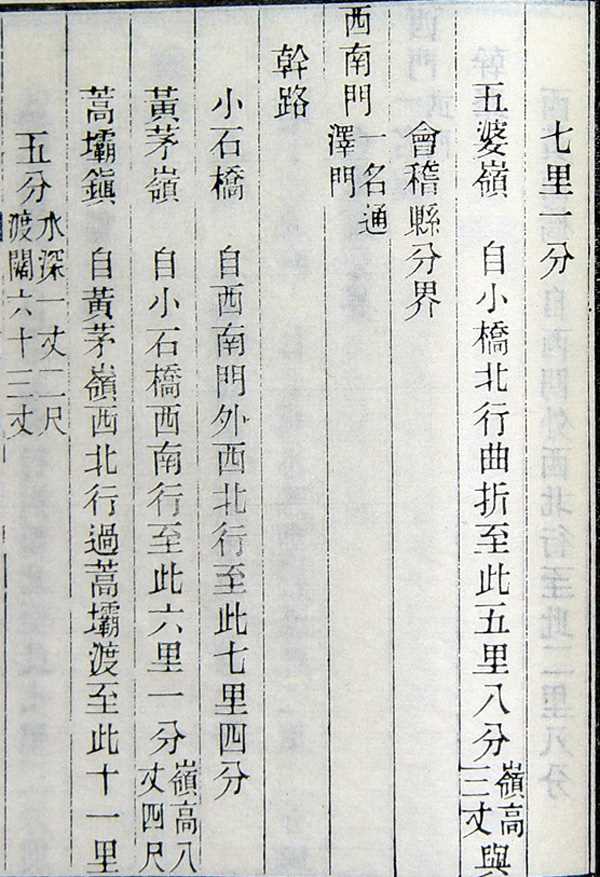 七里一分
五婆嶺　自小橋北行曲折至此五里八分嶺高三丈與
會稽縣分界
西南門一名通澤門
幹路
小石橋　自西南門外西北行至此七里四分
黃茅嶺　自小石橋西南行至此六里一分嶺高八丈四尺
蒿壩鎮　自黃茅嶺西北行過蒿壩渡至此十一里
五分水深一丈二尺渡闊六十三丈